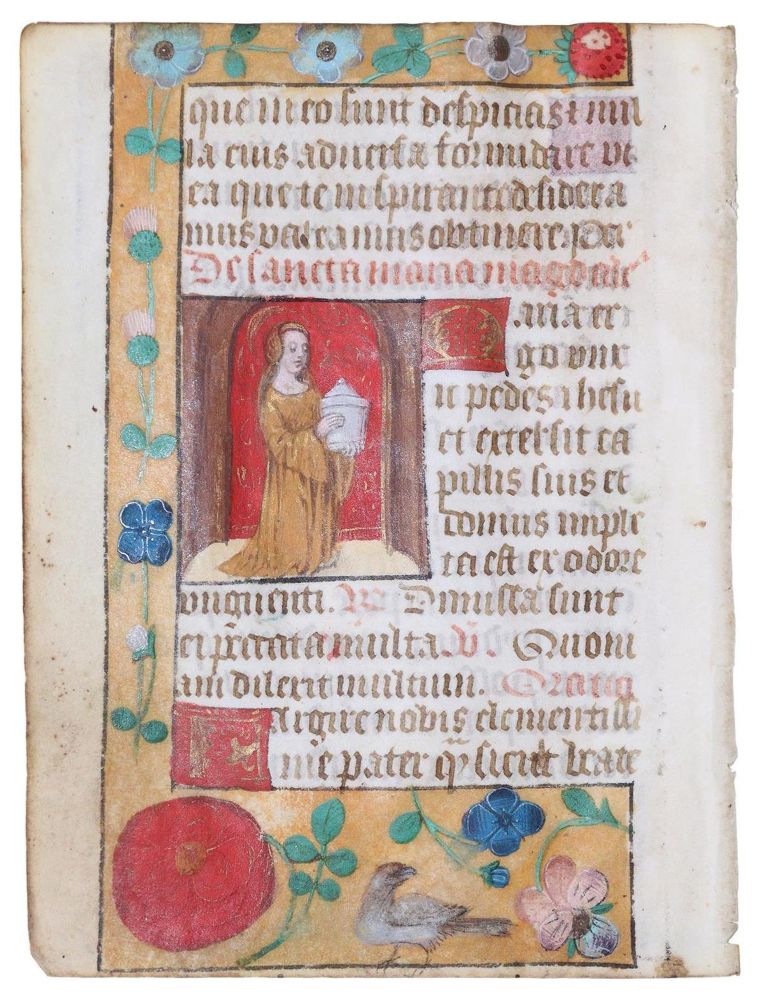 que in eo sunt despicias & nul
la eius adversa formidare ut
ea que te inspirante desidera
mus valeamus obtinere. Per
De sancta maria magdale
Maria er
go unx
it pedes ihesu
et extersit ca
pillis suis et
domus imple
ta est ex odore
unguenti. R Dimissa sunt
ei peccata multa V Quoni
am dilexit multum. Oratio
Largire nobis clementissi
me pater q sicut beate